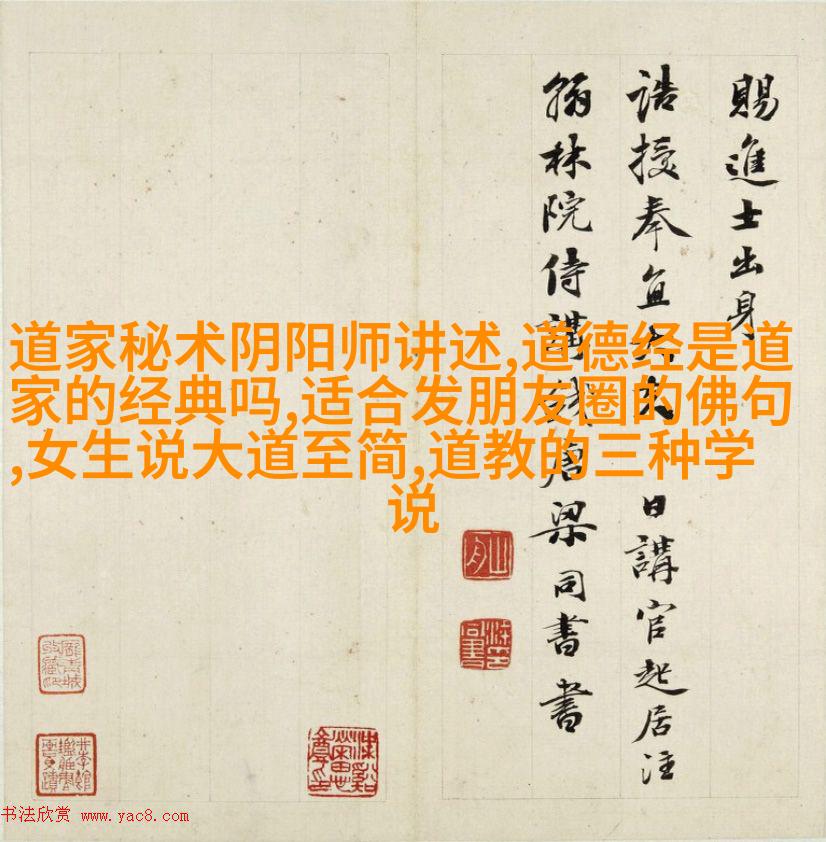 道家秘术阴阳师讲述,道德经是道
家的经典吗,适合发朋友圈的佛句
,女生说大道至简,道教的三种学
说
賜進士出身
誥授奉直大夫日講官起居注
翰林院侍講錢唐梁同書書
书法欣赏 www.yac8.com